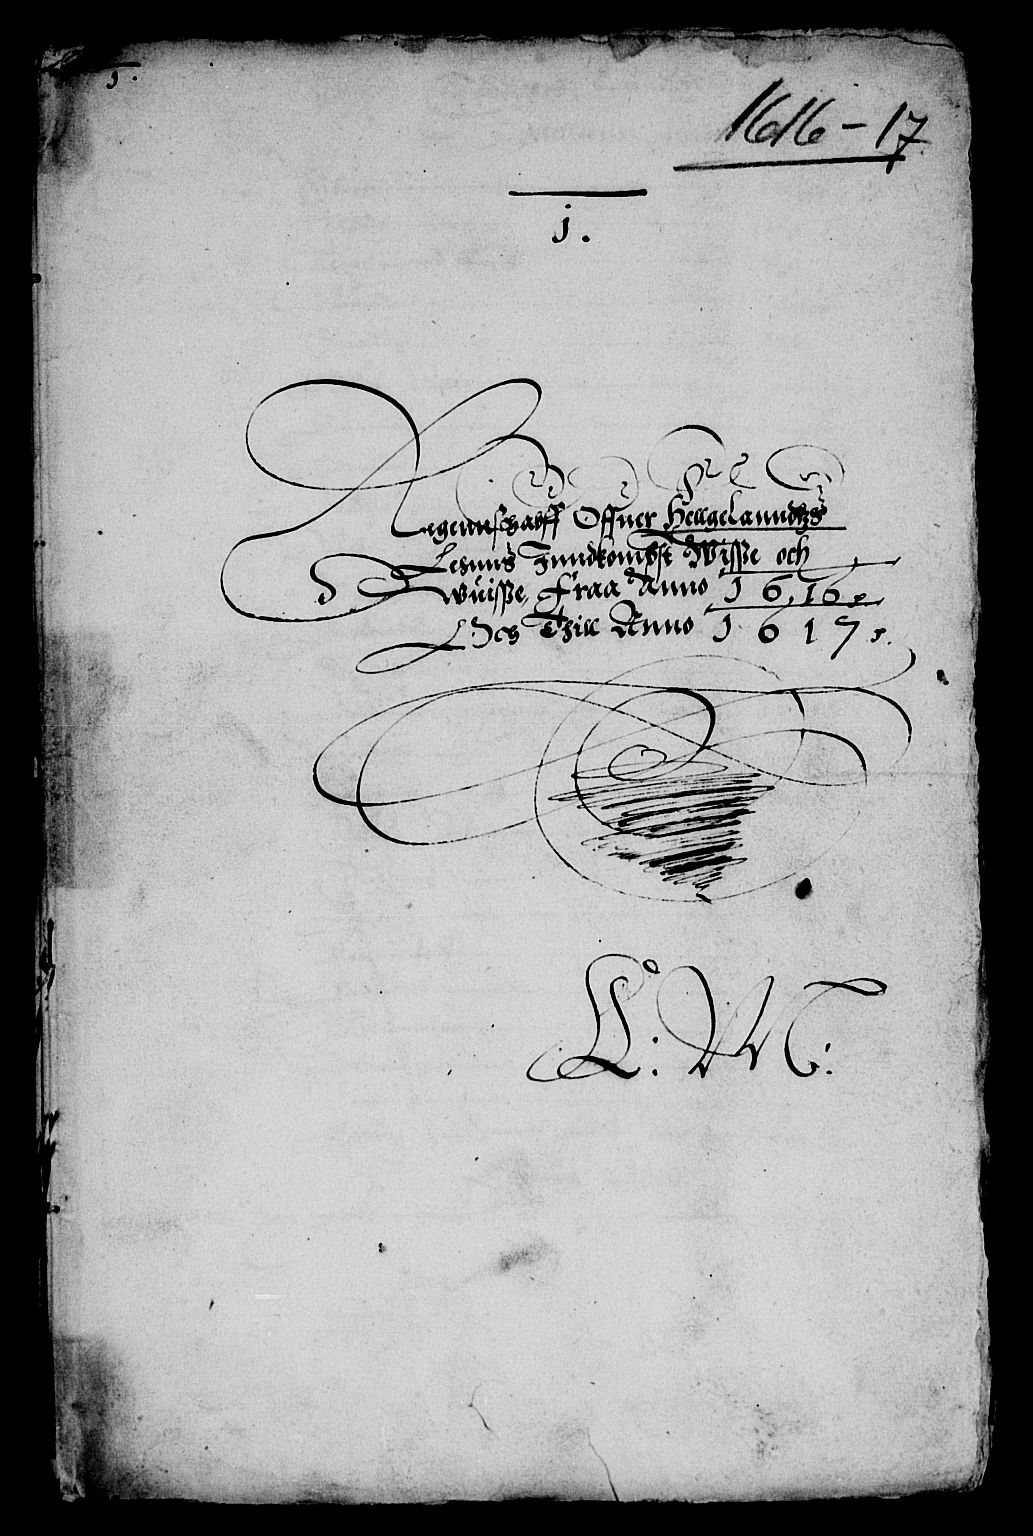 1.
1616-17
1.
Regennschabff Offuer Hellgelanndtzs
Lehnns Inndkompst Wisße och
Vwuisße, Fraa Anno 1616.
Och Thill Anno 1617.
L: M: